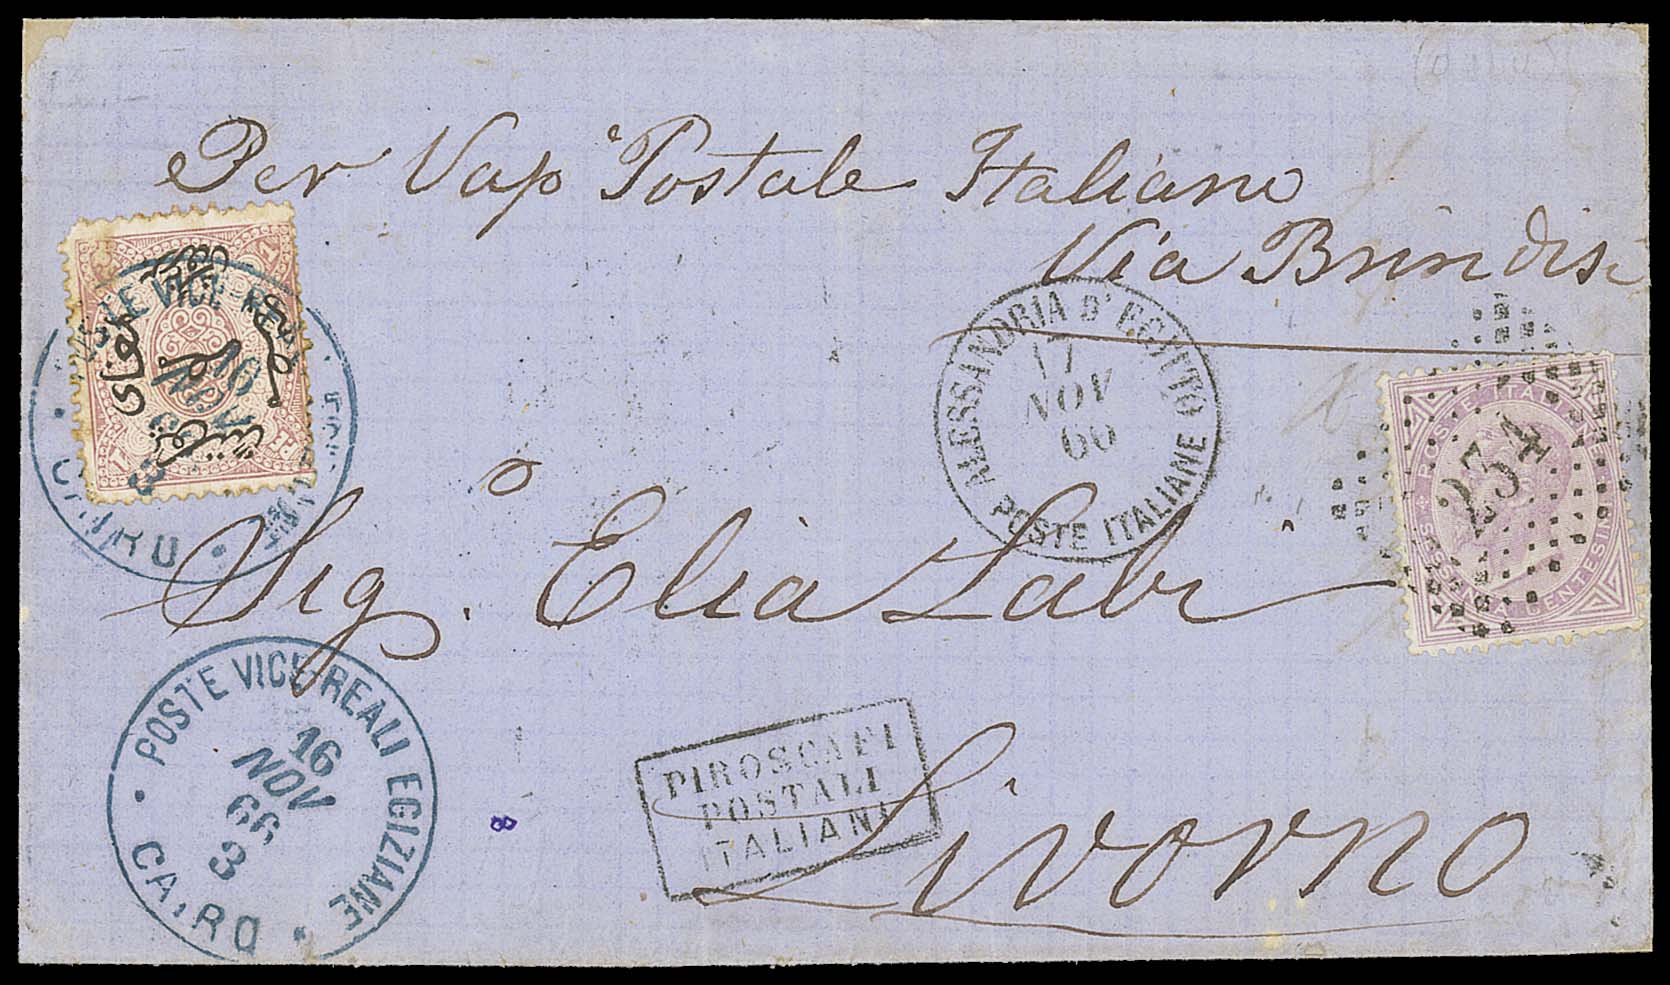 Per Vap Postale Italiano
Via Brindisi
Sig.º Elia Labi
Livorno
ALESSANDRIA D'EGITTO
17
NOV
66
POSTE ITALIANE
POSTE VICE-REALI EGIZIANE
16
NOV
66
3
CAIRO
POSTE VICE-REALI EGIZIANE
16
NOV
66
3
CAIRO
PIROSCAFI
POSTALI
ITALIANI
234
POSTE ITALIANE
SESSANTA CENTESIMI
8